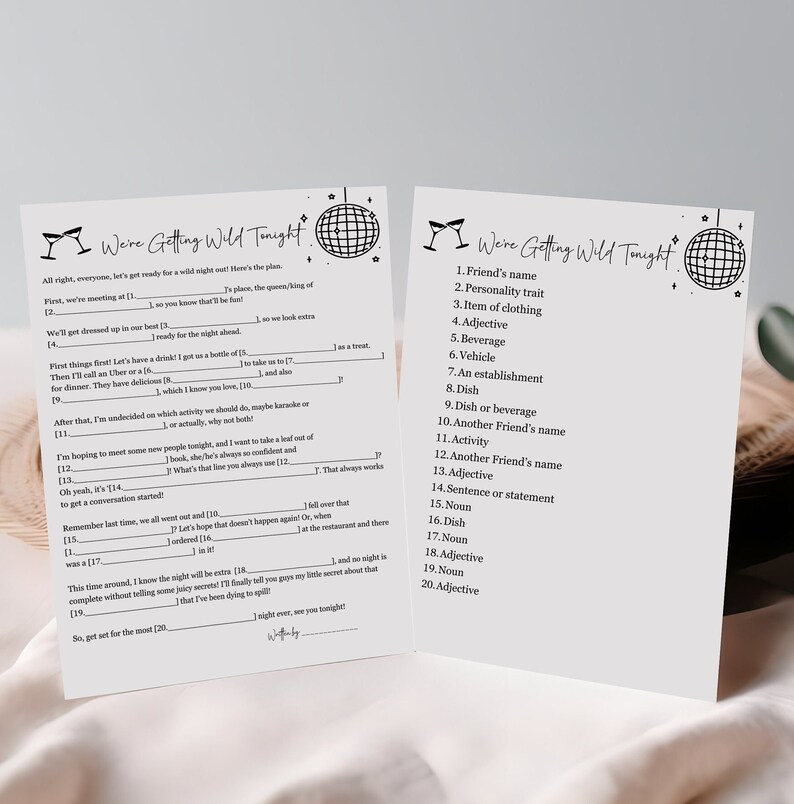 We're Getting Wild Tonight
All right, everyone, let's get ready for a wild night out! Here's the plan.
First, we're meeting at [1.____________________]'s place, the queen/king of
[2.____________________], so you know that'll be fun!
We'll get dressed up in our best [3.____________________], so we look extra
[4.____________________] ready for the night ahead.
First things first! Let's have a drink! I got us a bottle of [5.____________________] as a treat.
Then I'll call an Uber or a [6.____________________] to take us to [7.____________________]
for dinner. They have delicious [8.____________________], and also
[9.____________________], which I know you love, [10.____________________]!
After that, I'm undecided on which activity we should do, maybe karaoke or
[11.____________________], or actually, why not both!
I'm hoping to meet some new people tonight, and I want to take a leaf out of
[12.____________________] book, she/he's always so confident and
[13.____________________]! What's that line you always use [12.____________________]?
Oh yeah, it's '[14.________________________________________]'. That always works
to get a conversation started!
Remember last time, we all went out and [10.____________________] fell over that
[15.____________________]? Let's hope that doesn't happen again! Or, when
[1.____________________] ordered [16.____________________] at the restaurant and there
was a [17.____________________] in it!
This time around, I know the night will be extra [18.____________________], and no night is
complete without telling some juicy secrets! I'll finally tell you guys my little secret about that
[19.____________________] that I've been dying to spill!
So, get set for the most [20.____________________] night ever, see you tonight!
Written by _______________
We're Getting Wild Tonight
1. Friend's name
2. Personality trait
3. Item of clothing
4. Adjective
5. Beverage
6. Vehicle
7. An establishment
8. Dish
9. Dish or beverage
10. Another Friend's name
11. Activity
12. Another Friend's name
13. Adjective
14. Sentence or statement
15. Noun
16. Dish
17. Noun
18. Adjective
19. Noun
20. Adjective